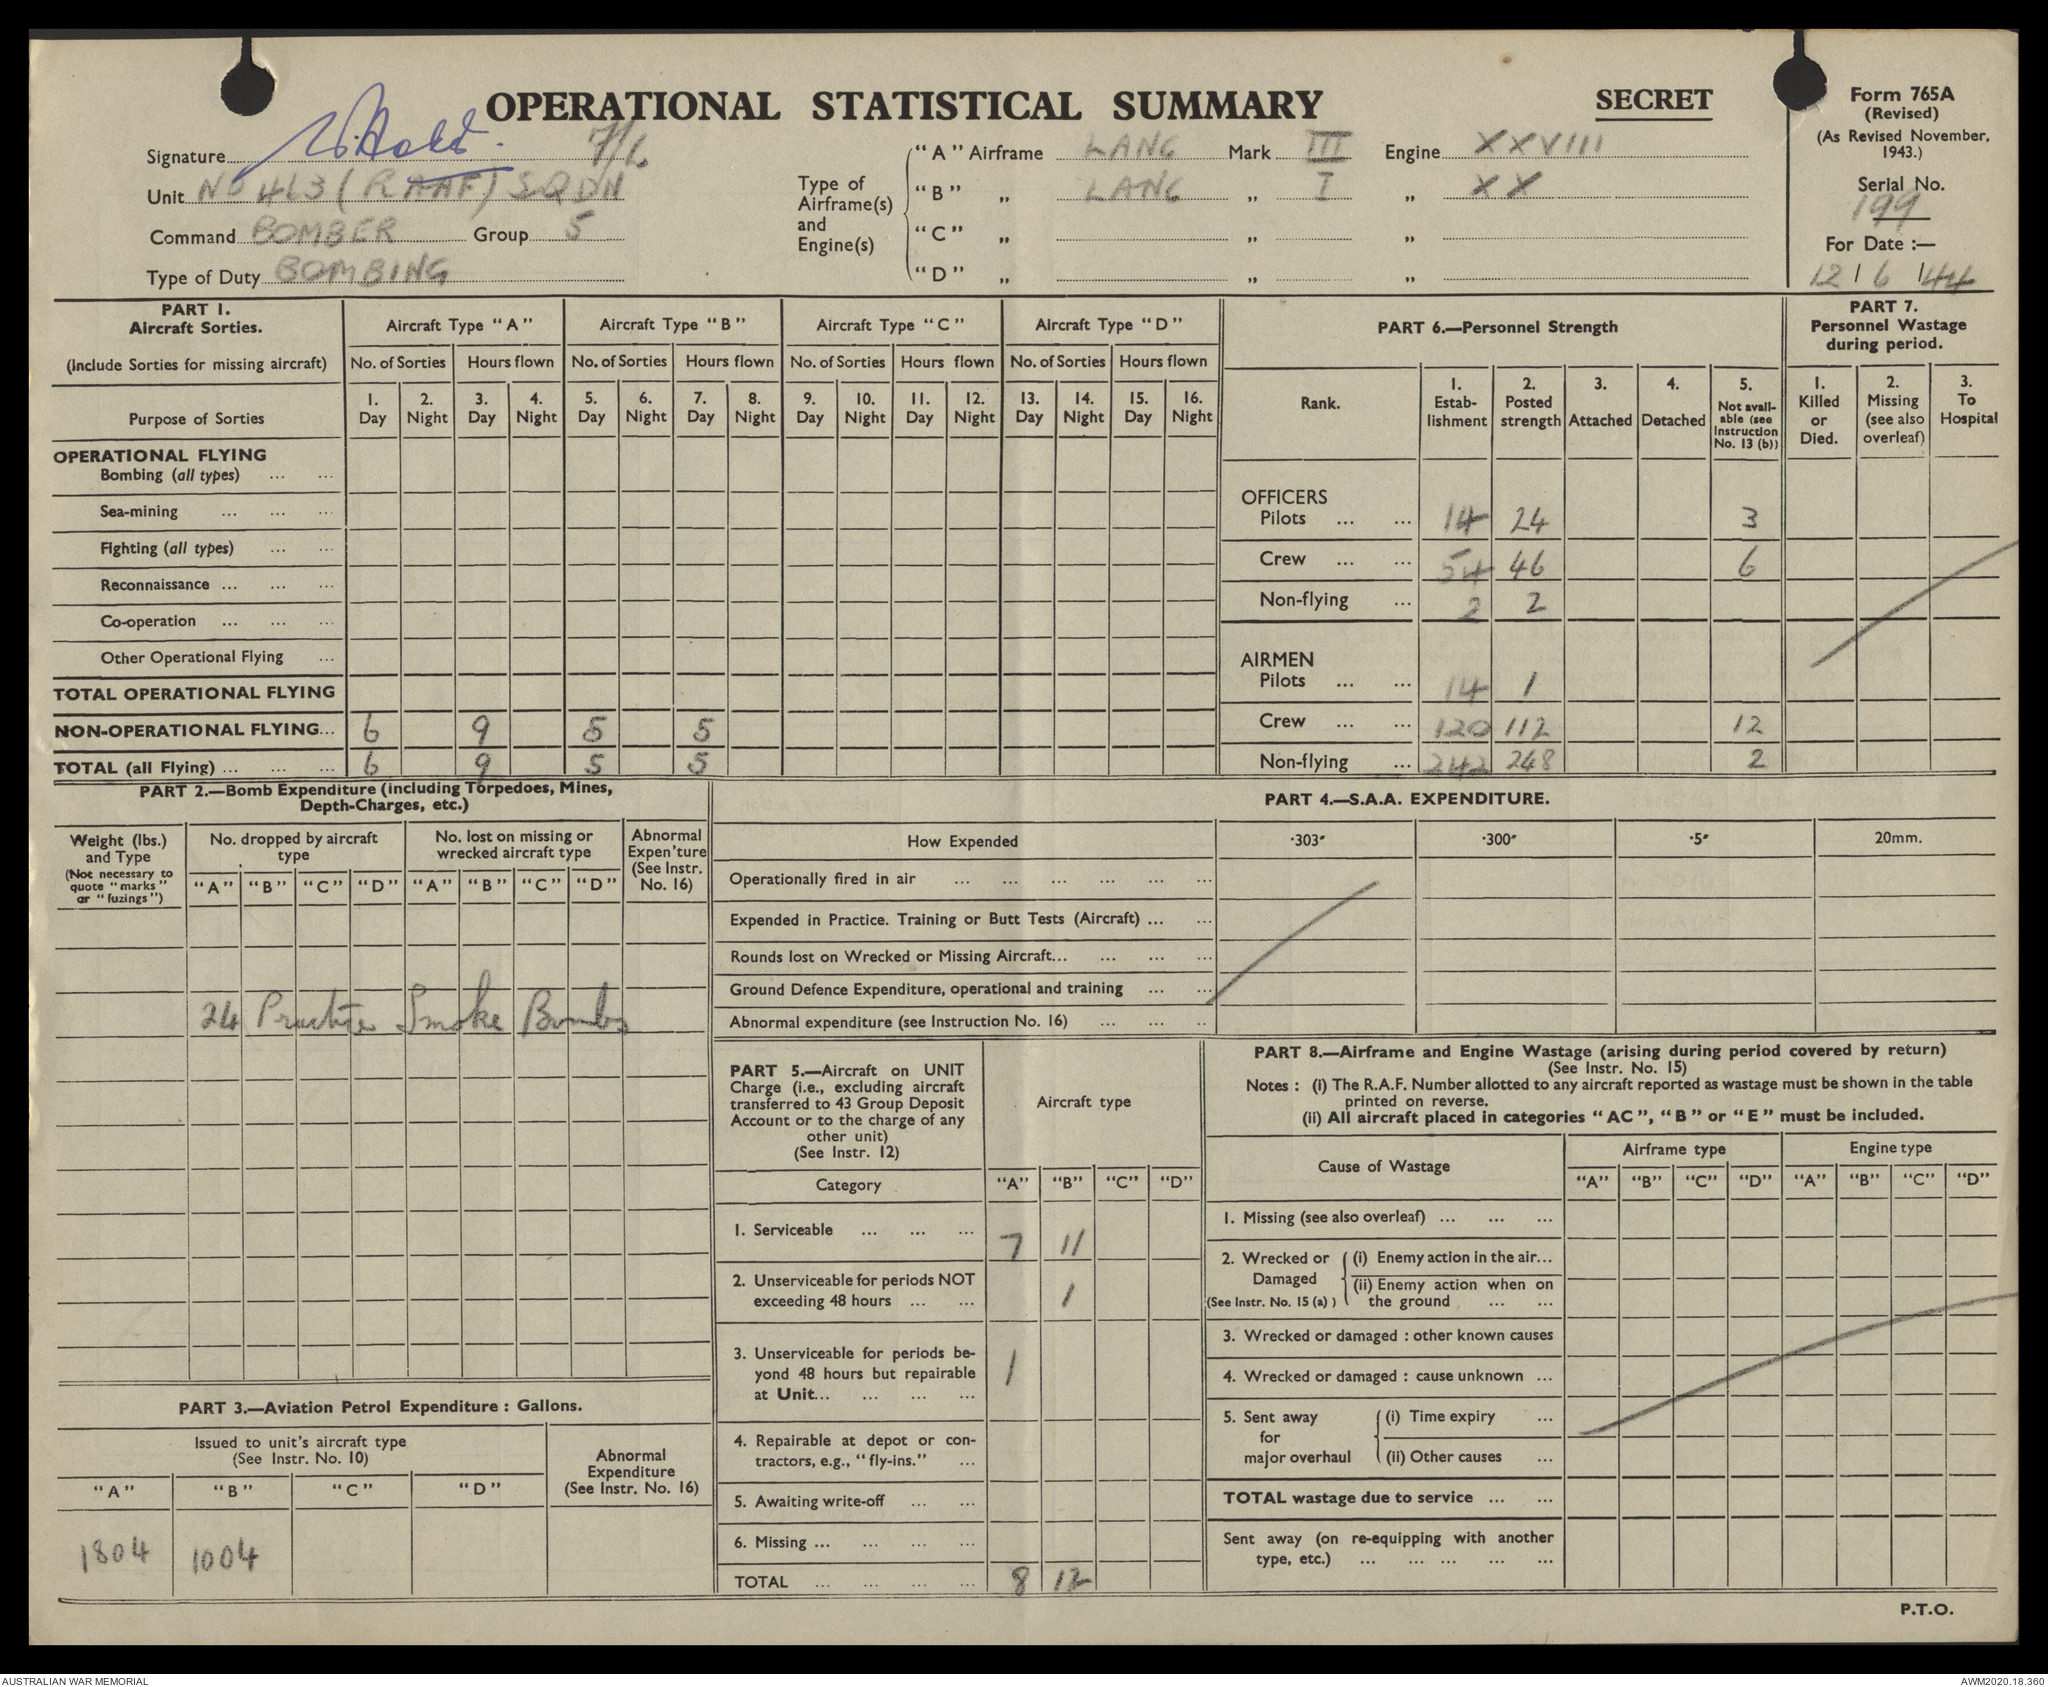 OPERATIONAL STATISTICAL SUMMARY
SECRET
Form 765A
(Revised)
(As Revised November, 1943.)
Serial No.
199
For Date :—
12 / 6 / 44
Signature F/L
Unit No 463 (RAAF) SQDN
Command BOMBER Group 5
Type of Duty BOMBING
Type of Airframe(s) and Engine(s)
"A" Airframe LANC Mark III Engine XXVIII
"B" „ LANC „ I „ XX
"C" „ „ „
"D" „ „ „
PART 1.
Aircraft Sorties.
(Include Sorties for missing aircraft)
Aircraft Type "A" Aircraft Type "B" Aircraft Type "C" Aircraft Type "D"
No. of Sorties Hours flown No. of Sorties Hours flown No. of Sorties Hours flown No. of Sorties Hours flown
Purpose of Sorties
1. Day 2. Night 3. Day 4. Night 5. Day 6. Night 7. Day 8. Night 9. Day 10. Night 11. Day 12. Night 13. Day 14. Night 15. Day 16. Night
OPERATIONAL FLYING
Bombing (all types) ... ...
Sea-mining ... ... ...
Fighting (all types) ... ...
Reconnaissance ... ... ...
Co-operation ... ... ...
Other Operational Flying ...
TOTAL OPERATIONAL FLYING
NON-OPERATIONAL FLYING... 6 9 5 5
TOTAL (all Flying) ... ... ... 6 9 5 5
PART 6.—Personnel Strength
Rank.
1. Estab-lishment
2. Posted strength
3. Attached
4. Detached
5. Not avail-able (see Instruction No. 13 (b))
OFFICERS
Pilots ... ... 14 24 3
Crew ... ... 54 46 6
Non-flying ... 2 2
AIRMEN
Pilots ... ... 14 1
Crew ... ... 120 112 12
Non-flying ... 242 248 2
PART 7.
Personnel Wastage during period.
1. Killed or Died.
2. Missing (see also overleaf)
3. To Hospital
PART 2.—Bomb Expenditure (including Torpedoes, Mines,
Depth-Charges, etc.)
Weight (lbs.) and Type
(Not necessary to quote "marks" or "fuzings")
No. dropped by aircraft type
No. lost on missing or wrecked aircraft type
Abnormal Expen'ture (See Instr. No. 16)
"A" "B" "C" "D" "A" "B" "C" "D"
24 Practice Smoke Bombs
PART 4.—S.A.A. EXPENDITURE.
How Expended ·303" ·300" ·5" 20mm.
Operationally fired in air ... ... ... ... ... ...
Expended in Practice. Training or Butt Tests (Aircraft) ... ...
Rounds lost on Wrecked or Missing Aircraft... ... ... ...
Ground Defence Expenditure, operational and training ... ...
Abnormal expenditure (see Instruction No. 16) ... ... ..
PART 3.—Aviation Petrol Expenditure : Gallons.
Issued to unit's aircraft type
(See Instr. No. 10)
Abnormal Expenditure (See Instr. No. 16)
"A" "B" "C" "D"
1804 1004
PART 5.—Aircraft on UNIT
Charge (i.e., excluding aircraft
transferred to 43 Group Deposit
Account or to the charge of any
other unit)
(See Instr. 12)
Aircraft type
Category "A" "B" "C" "D"
1. Serviceable ... ... ... 7 11
2. Unserviceable for periods NOT
exceeding 48 hours ... ... 1
3. Unserviceable for periods be-
yond 48 hours but repairable
at Unit... ... ... ... 1
4. Repairable at depot or con-
tractors, e.g., "fly-ins." ...
5. Awaiting write-off ... ...
6. Missing ... ... ... ...
TOTAL ... ... ... ... 8 12
PART 8.—Airframe and Engine Wastage (arising during period covered by return)
(See Instr. No. 15)
Notes : (i) The R.A.F. Number allotted to any aircraft reported as wastage must be shown in the table
printed on reverse.
(ii) All aircraft placed in categories "AC", "B" or "E" must be included.
Cause of Wastage Airframe type Engine type
"A" "B" "C" "D" "A" "B" "C" "D"
1. Missing (see also overleaf) ... ... ...
2. Wrecked or Damaged (See Instr. No. 15 (a) )
(i) Enemy action in the air...
(ii) Enemy action when on the ground ... ...
3. Wrecked or damaged : other known causes
4. Wrecked or damaged : cause unknown ...
5. Sent away for major overhaul
(i) Time expiry ...
(ii) Other causes ...
TOTAL wastage due to service ... ...
Sent away (on re-equipping with another
type, etc.) ... ... ... ... ...
P.T.O.
AUSTRALIAN WAR MEMORIAL
AWM2020.18.360